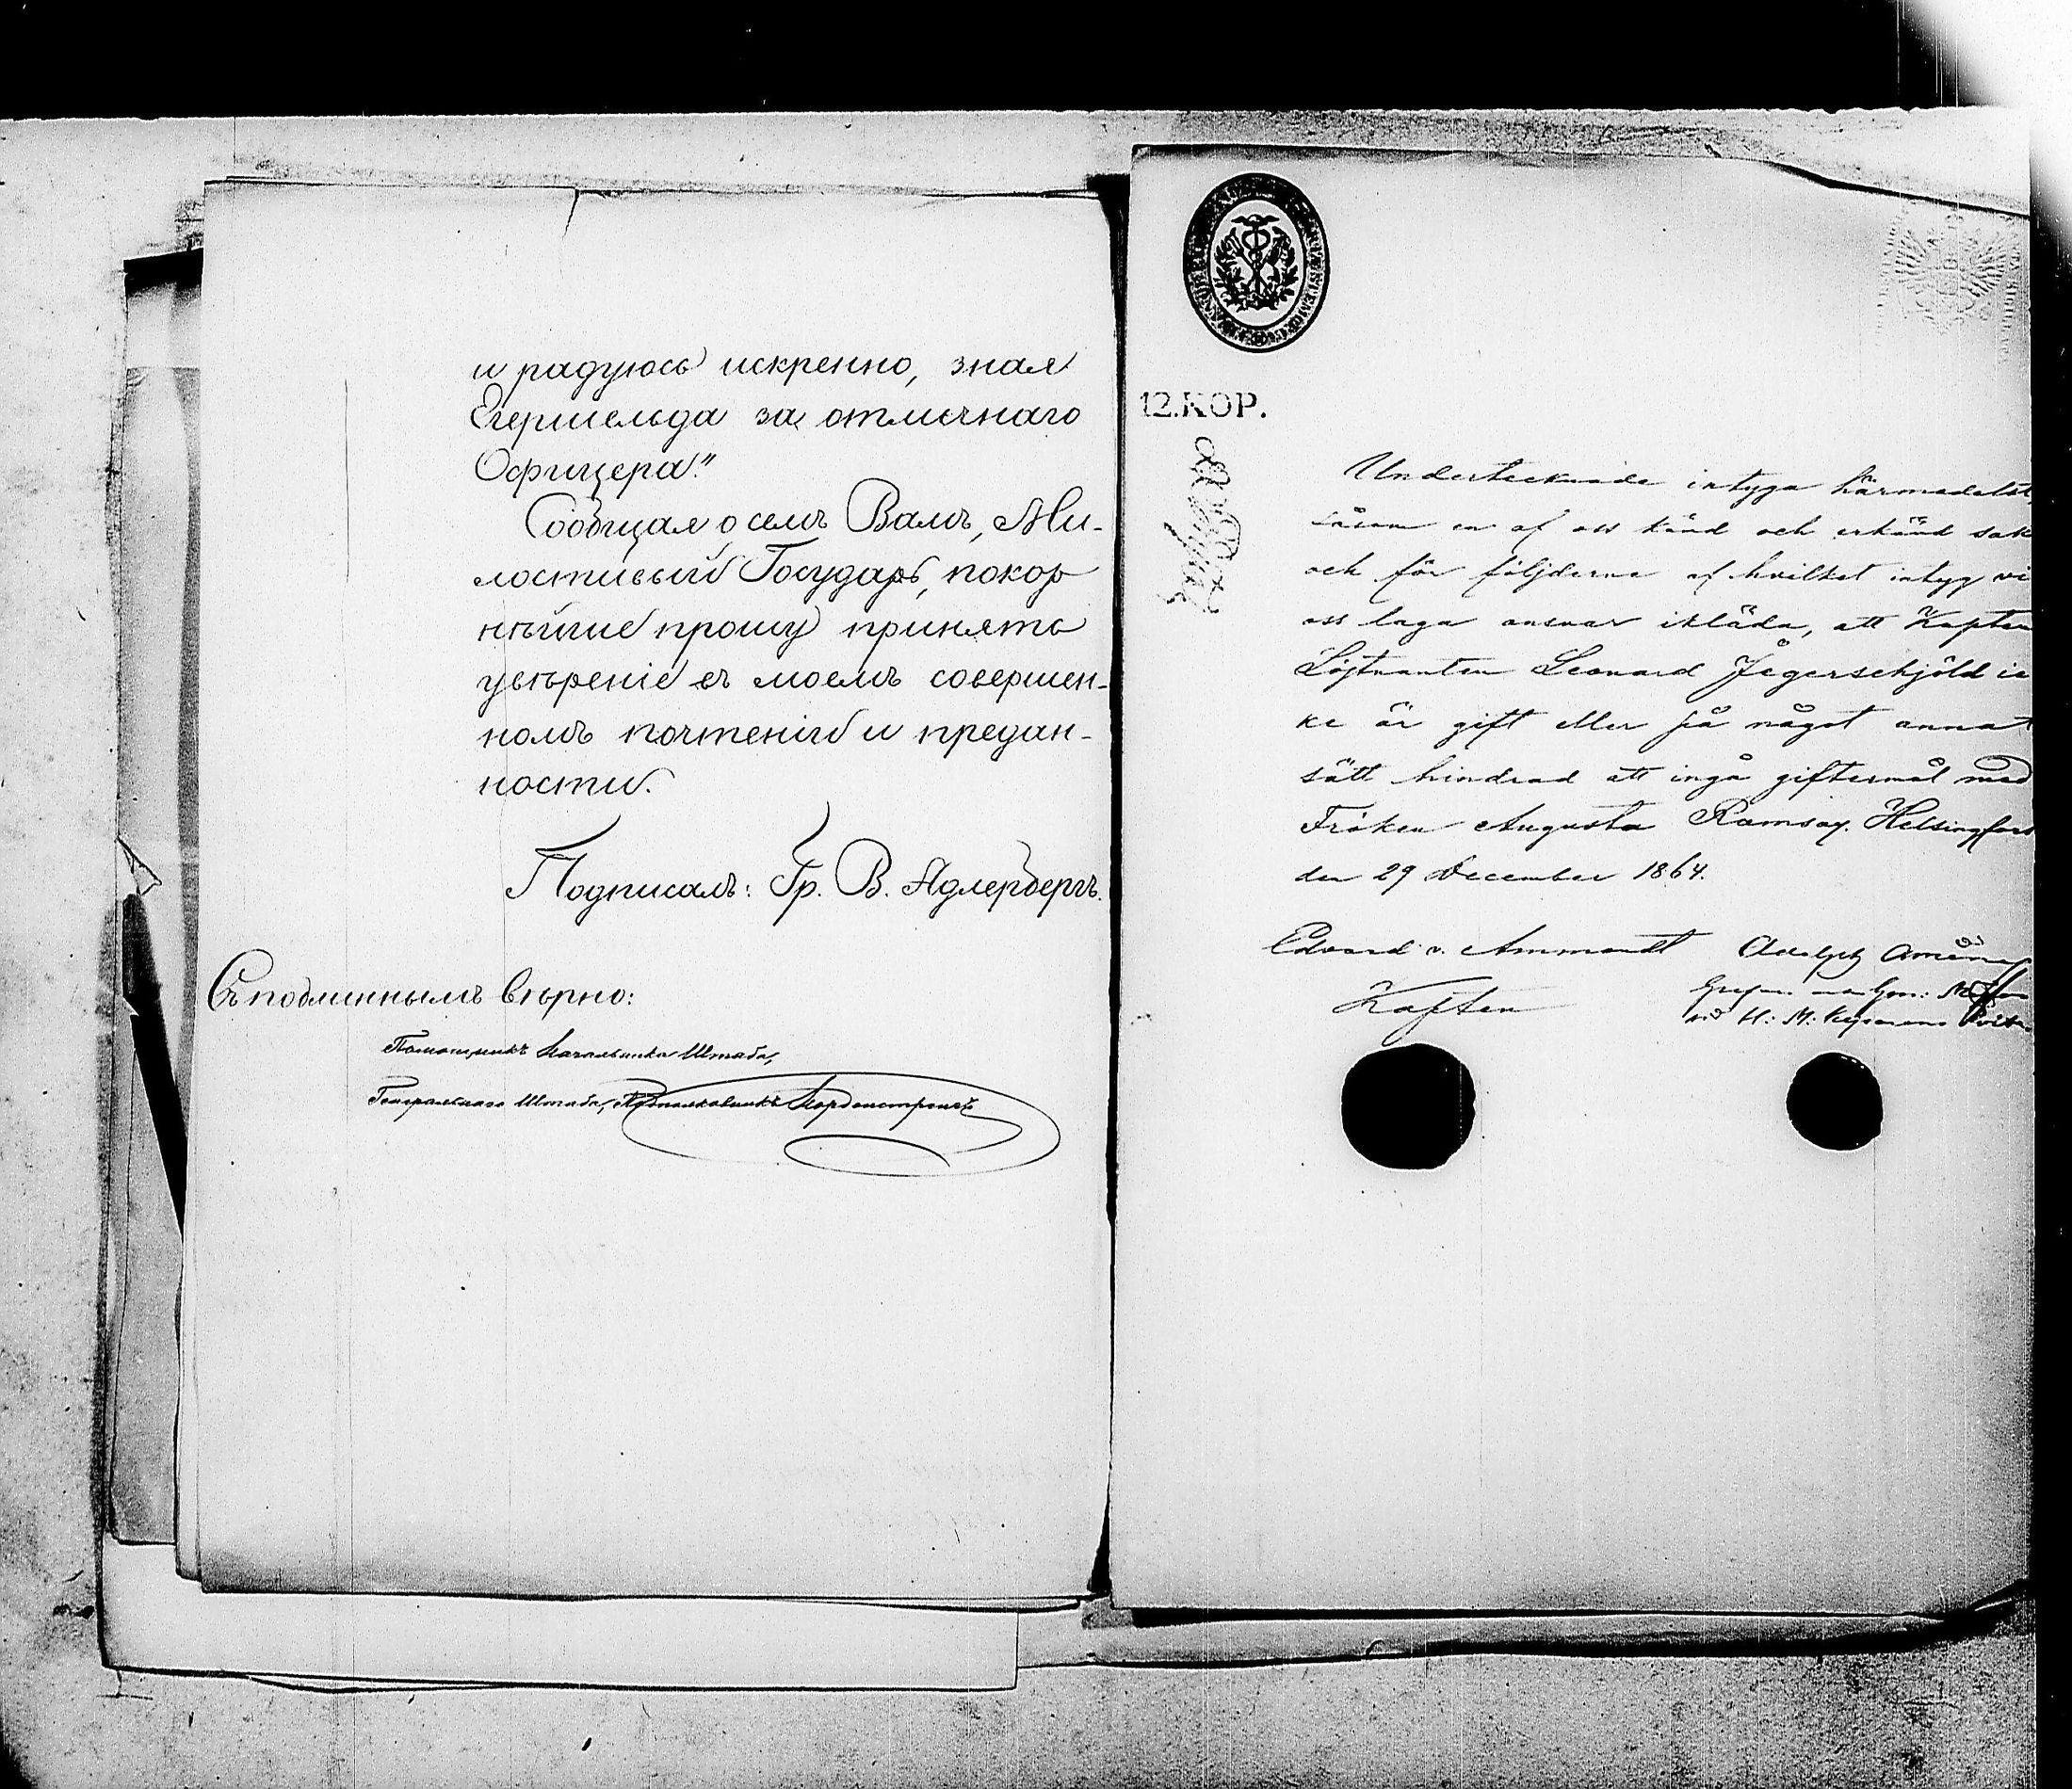 и радуюсь искренно, зная
Егершельда за отличнаго
Офицера."
Сообщая о семъ Вамъ, Ми-
лостивый Государь, покор
нѣйше прошу принять
увѣреніе въ моемъ совершен-
номъ почтеніи и предан-
ности.
Подписалъ: Гр. В. Адлербергъ.
Съ подлиннымъ вѣрно:
Помощникъ Начальника Штаба,
Генеральнаго Штаба, Подполковникъ Норденстренгъ
12.KOP.
Undertecknade intyga härmedelst,
såsom en af oss känd och erkänd sak
och för följderna af hvilket intyg vi
oss laga ansvar ikläda, att Kapten
Löjtnanten Leonard Jägerschjöld ic
ke är gift eller på något annat
sätt hindrad att ingå giftermål med
Fröken Augusta Ramsay. Helsingfors
den 29 December 1864.
Edvard v. Ammondt
Kapten
Adolph Aminoff